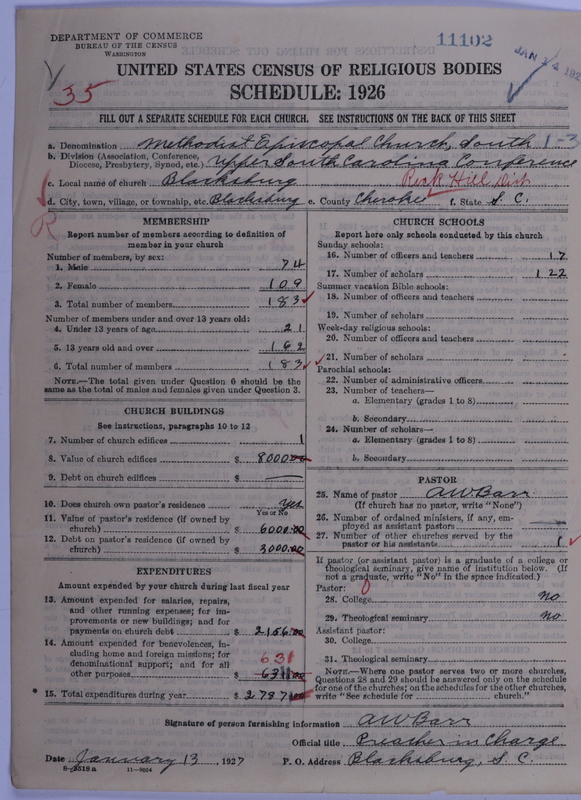 DEPARTMENT OF COMMERCE
BUREAU OF THE CENSUS
WASHINGTON
11102
JAN 14 192
35
UNITED STATES CENSUS OF RELIGIOUS BODIES
SCHEDULE: 1926
FILL OUT A SEPARATE SCHEDULE FOR EACH CHURCH. SEE INSTRUCTIONS ON THE BACK OF THIS SHEET
a. Denomination Methodist Episcopal Church, South 1-3
b. Division (Association, Conference,
Diocese, Presbytery, Synod, etc.) Upper South Carolina Conference
c. Local name of church Blacksburg Rock Hill Dist
d. City, town, village, or township, etc. Blacksburg e. County Cherokee f. State S. C.
R
MEMBERSHIP
Report number of members according to definition of
member in your church
Number of members, by sex:
1. Male 74
2. Female 109
3. Total number of members 183
Number of members under and over 13 years old:
4. Under 13 years of age 21
5. 13 years old and over 162
6. Total number of members 183
NOTE.—The total given under Question 6 should be
same as the total of males and females given under Question 3.
CHURCH BUILDINGS
See instructions, paragraphs 10 to 12
7. Number of church edifices 1
8. Value of church edifices $ 8000.00
9. Debt on church edifices $ —
10. Does church own pastor's residence yes
Yes or No
11. Value of pastor's residence (if owned by
church) $ 6000.00
12. Debt on pastor's residence (if owned by
church) $ 3000.00
EXPENDITURES
Amount expended by your church during last fiscal year
13. Amount expended for salaries, repairs,
and other running expenses; for im-
provements or new buildings; and for
payments on church debt $ 2156.00
14. Amount expended for benevolences, in-
cluding home and foreign missions; for
denominational support; and for all
631
other purposes $ 631.00
* 15. Total expenditures during year $ 2787.00
CHURCH SCHOOLS
Report here only schools conducted by this church
Sunday schools:
16. Number of officers and teachers 17
17. Number of scholars 122
Summer vacation Bible schools:
18. Number of officers and teachers
19. Number of scholars
Week-day religious schools:
20. Number of officers and teachers
21. Number of scholars
Parochial schools:
22. Number of administrative officers
23. Number of teachers—
a. Elementary (grades 1 to 8)
b. Secondary
24. Number of scholars—
a. Elementary (grades 1 to 8)
b. Secondary
PASTOR
25. Name of pastor A W Barr
(If church has no pastor, write "None")
26. Number of ordained ministers, if any, em-
ployed as assistant pastors —
27. Number of other churches served by the
pastor or his assistants 1
If pastor (or assistant pastor) is a graduate of a college or
theological seminary, give name of institution below. (If
not a graduate, write "No" in the space indicated.)
Pastor: 0
28. College No
29. Theological seminary No
Assistant pastor:
30. College
31. Theological seminary
NOTE.—Where one pastor serves two or more churches,
Questions 28 and 29 should be answered only on the schedule
for one of the churches; on the schedules for the other churches,
write "See schedule for ________ church."
Signature of person furnishing information A W Barr
Official title Preacher in Charge
Date January 13, 1927 P. O. Address Blacksburg, S. C.
8-3518a 11-9024